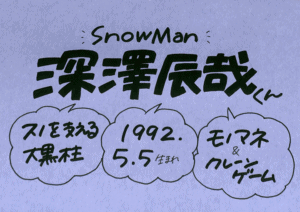 SnowMan
深澤辰哉くん
スノを支える
大黒柱
1992.
5.5 生まれ
モノマネ
&
クレーン
ゲーム